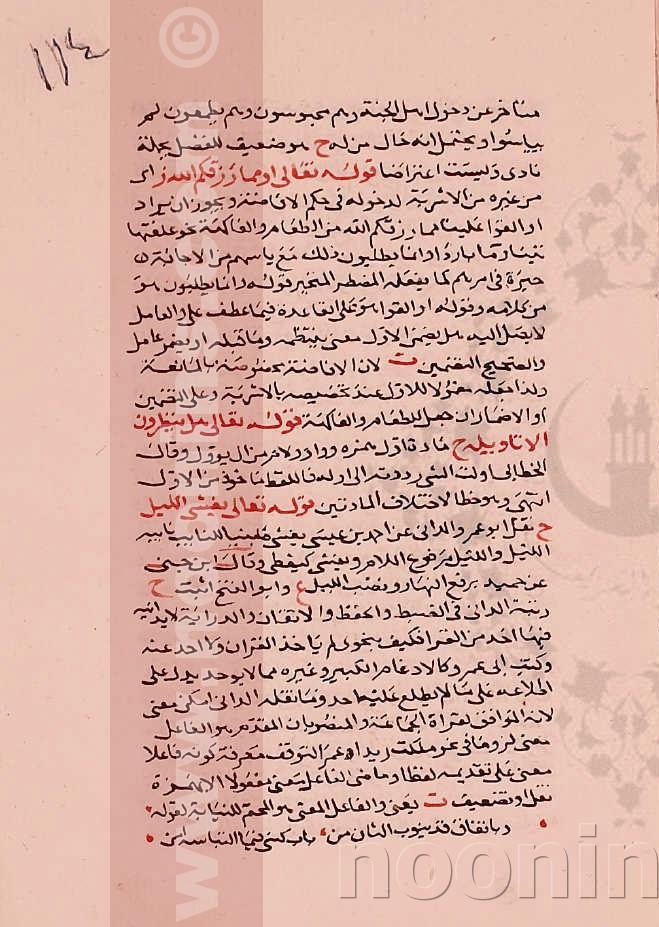 ١١٤
متأخر عن دخول اهل الجنة وهم محبوسون وهم يطمعون لم
ييأسوا ويحتمل انه حال من له ح هو ضعيف للفصل بجملة
نادى وليست اعتراضا قوله تعالى او مما رزقكم الله ز اى
من غيره من الاشربة لدخوله في حكم الافاضة ويجوز ان يراد
او القوا علينا مما رزقكم الله من الطعام والفاكهة نحو علفتها
تبنا وما باردا وانما يطلبون ذلك مع ياسهم من الاجابة
حيرة في امرهم كما يفعله المضطر المتحير قوله وانما يطلبون هو
من كلامه وقوله او القوا هو على القاعدة فيما عطف على والعامل
لا يصل اليه هل يضمن الاول معنى ينتظمه وما قبله او يضمر عامل
والصحيح التضمين ت لان الافاضة مخصوصة بالمائعة
ولذا جعله حقا للاول عند تخصيصه بالاشربة وعلى التضمين
او الاضمار ان حمل للطعام والفاكهة قوله تعالى هل ينظرون
الا تاويله ح مادة اول بهمزه وواو ولام من ال يؤول وقال
الخطابي اولت الشي رددته الى اوله فاللفظ ماخوذ من الاول
انتهى وهو خطا لاختلاف المادتين قوله تعالى يغشى الليل
ح نقل ابو عمرو الداني عن احمد بن عيسى
الليل والليل مرفوع اللام ويغشى كيغطى وقال ابن جنى
عن حميد برفع النهار ونصب الليل ع وابو الفتح اثبت ح
رتبة الداني في الضبط والحفظ والاتقان والدراية لا يدانيه
فيها احد من القرا فكيف بنحوى لم ياخذ القران ولا احد عنه
وكتب ابى عمرو كالادغام الكبير وغيره مما لا يوجد يدل على
اطلاعه على ما لم يطلع عليه احد وما نقله الداني امكن معنى
لانه الموافق لقراة الجماعة والمنصوبان المقدم هو الفاعل
معنى لزوما في نحو ملكت زيدا عمرا لتوقف معرفة كونه فاعلا
معنى على تقديمه لفظا وماضى الفاعل معنى مفعولا الا لهمزة
نقل او تضعيف ت يعنى والفاعل المعنى هو المحتم للنيابة لقوله
وباتفاق قد ينوب الثان من باب كسى فيما التباسه امن